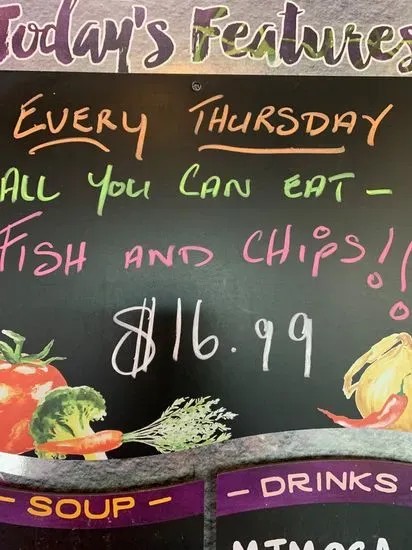 Today's Features
EVERY THURSDAY
ALL YOU CAN EAT -
FISH AND CHIPS!!
$16.99
- SOUP -
- DRINKS -
MIMOSA